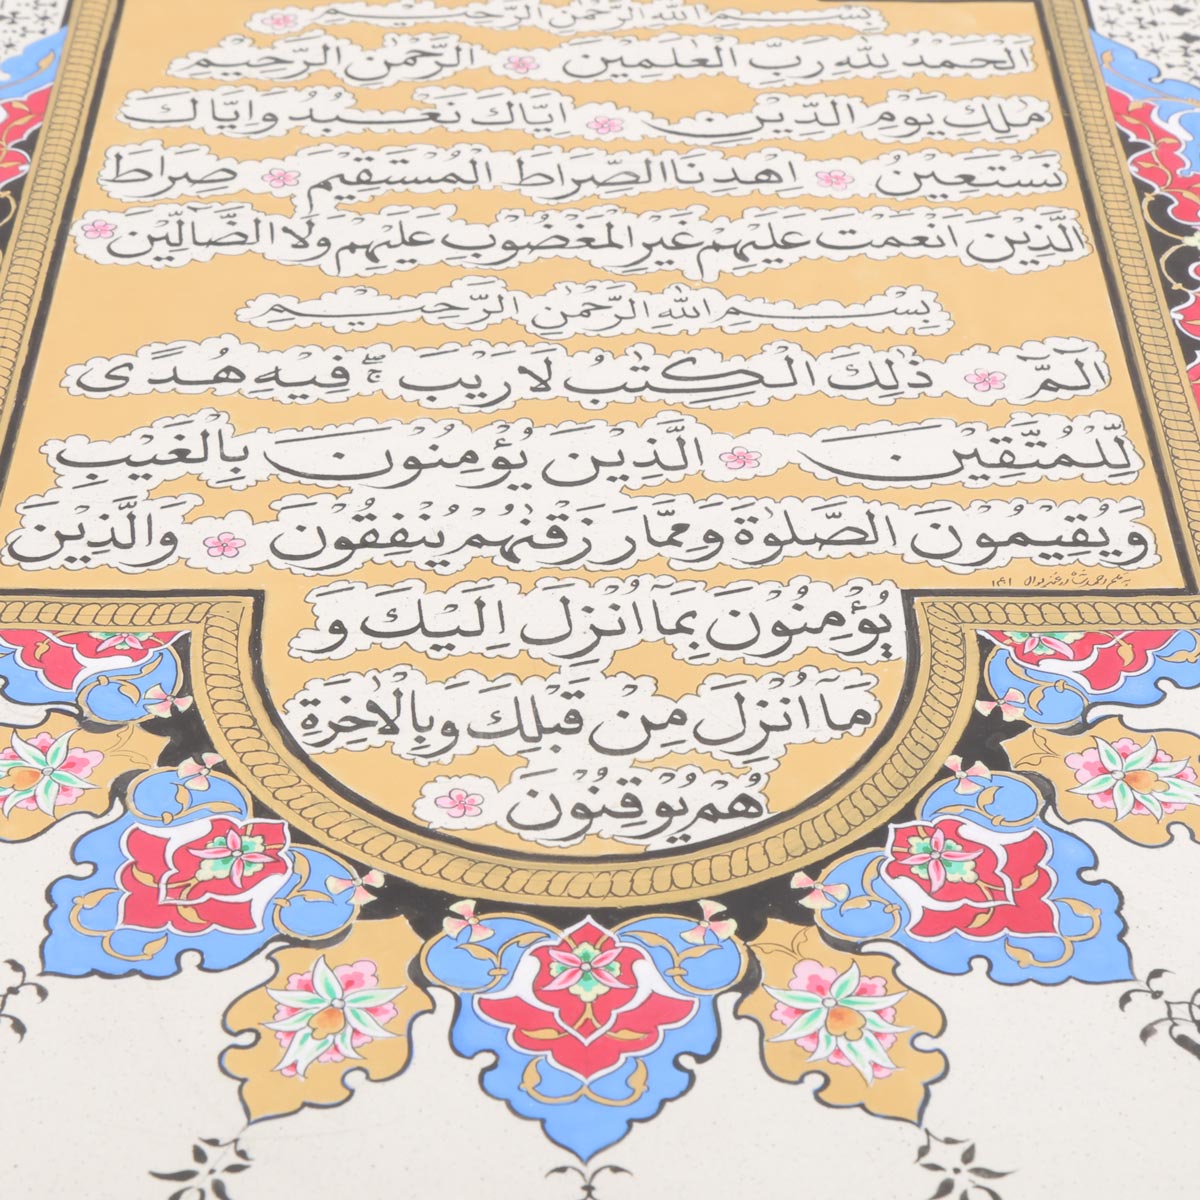 بِسْمِ اللهِ الرَّحْمٰنِ الرَّحِيْمِ
اَلْحَمْدُ لِلّٰهِ رَبِّ الْعٰلَمِيْنَ الرَّحْمٰنِ الرَّحِيْمِ
مٰلِكِ يَوْمِ الدِّيْنِ اِيَّاكَ نَعْبُدُ وَاِيَّاكَ
نَسْتَعِيْنُ اِهْدِنَا الصِّرَاطَ الْمُسْتَقِيْمَ صِرَاطَ
الَّذِيْنَ اَنْعَمْتَ عَلَيْهِمْ غَيْرِ الْمَغْضُوْبِ عَلَيْهِمْ وَلَا الضَّآلِّيْنَ
بِسْمِ اللهِ الرَّحْمٰنِ الرَّحِيْمِ
الٓمّٓ ذٰلِكَ الْكِتٰبُ لَا رَيْبَ ۛۚ فِيْهِ هُدًى
لِّلْمُتَّقِيْنَ الَّذِيْنَ يُؤْمِنُوْنَ بِالْغَيْبِ
وَيُقِيْمُوْنَ الصَّلٰوةَ وَمِمَّا رَزَقْنٰهُمْ يُنْفِقُوْنَ وَالَّذِيْنَ
يُؤْمِنُوْنَ بِمَآ اُنْزِلَ اِلَيْكَ وَ
مَآ اُنْزِلَ مِنْ قَبْلِكَ وَبِالْاٰخِرَةِ
هُمْ يُوْقِنُوْنَ